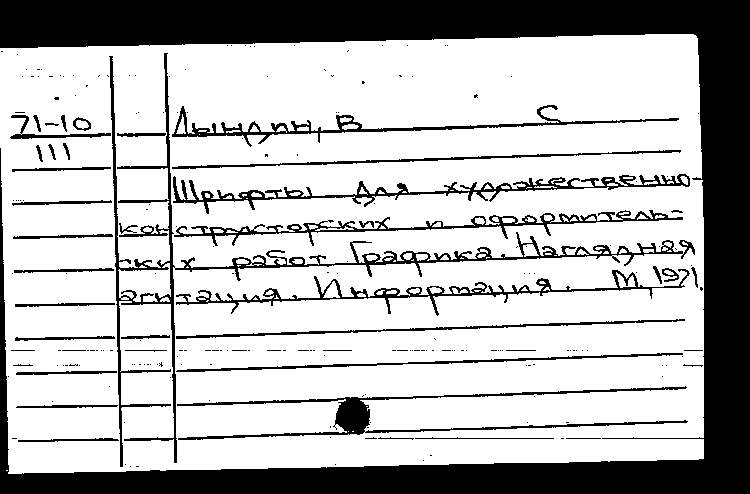 71-10 Лындин, В С
111
Шрифты для художественно-
конструкторских и оформитель-
ских работ Графика. Наглядная
агитация. Информация. М, 1971.